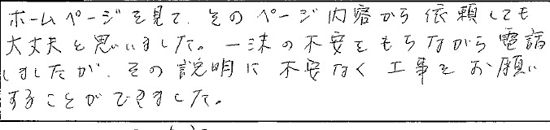 ホームページを見て、そのページ内容から依頼しても
大丈夫と思いました。一沫の不安をもちながら電話
しましたが、その説明に不安なく工事をお願い
することができました。